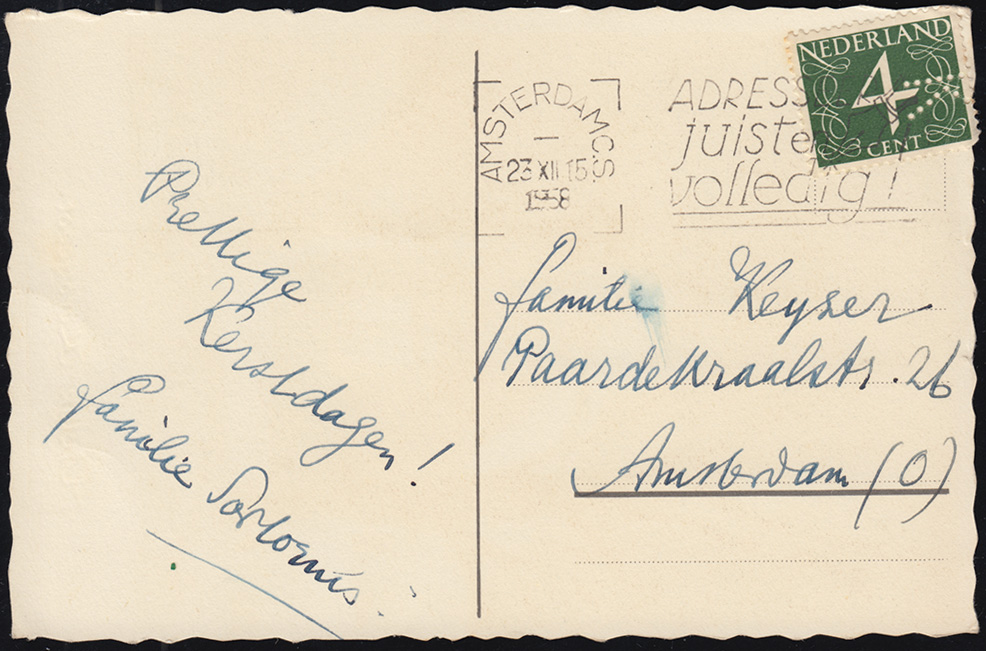 Prettige
Kerstdagen!
Familie
AMSTERDAM C.S
23 XII 15
1958
ADRESS
juist en
volledig!
NEDERLAND
4
CENT
familie Keyser
Paardekraalstr. 26
Amsterdam (O)